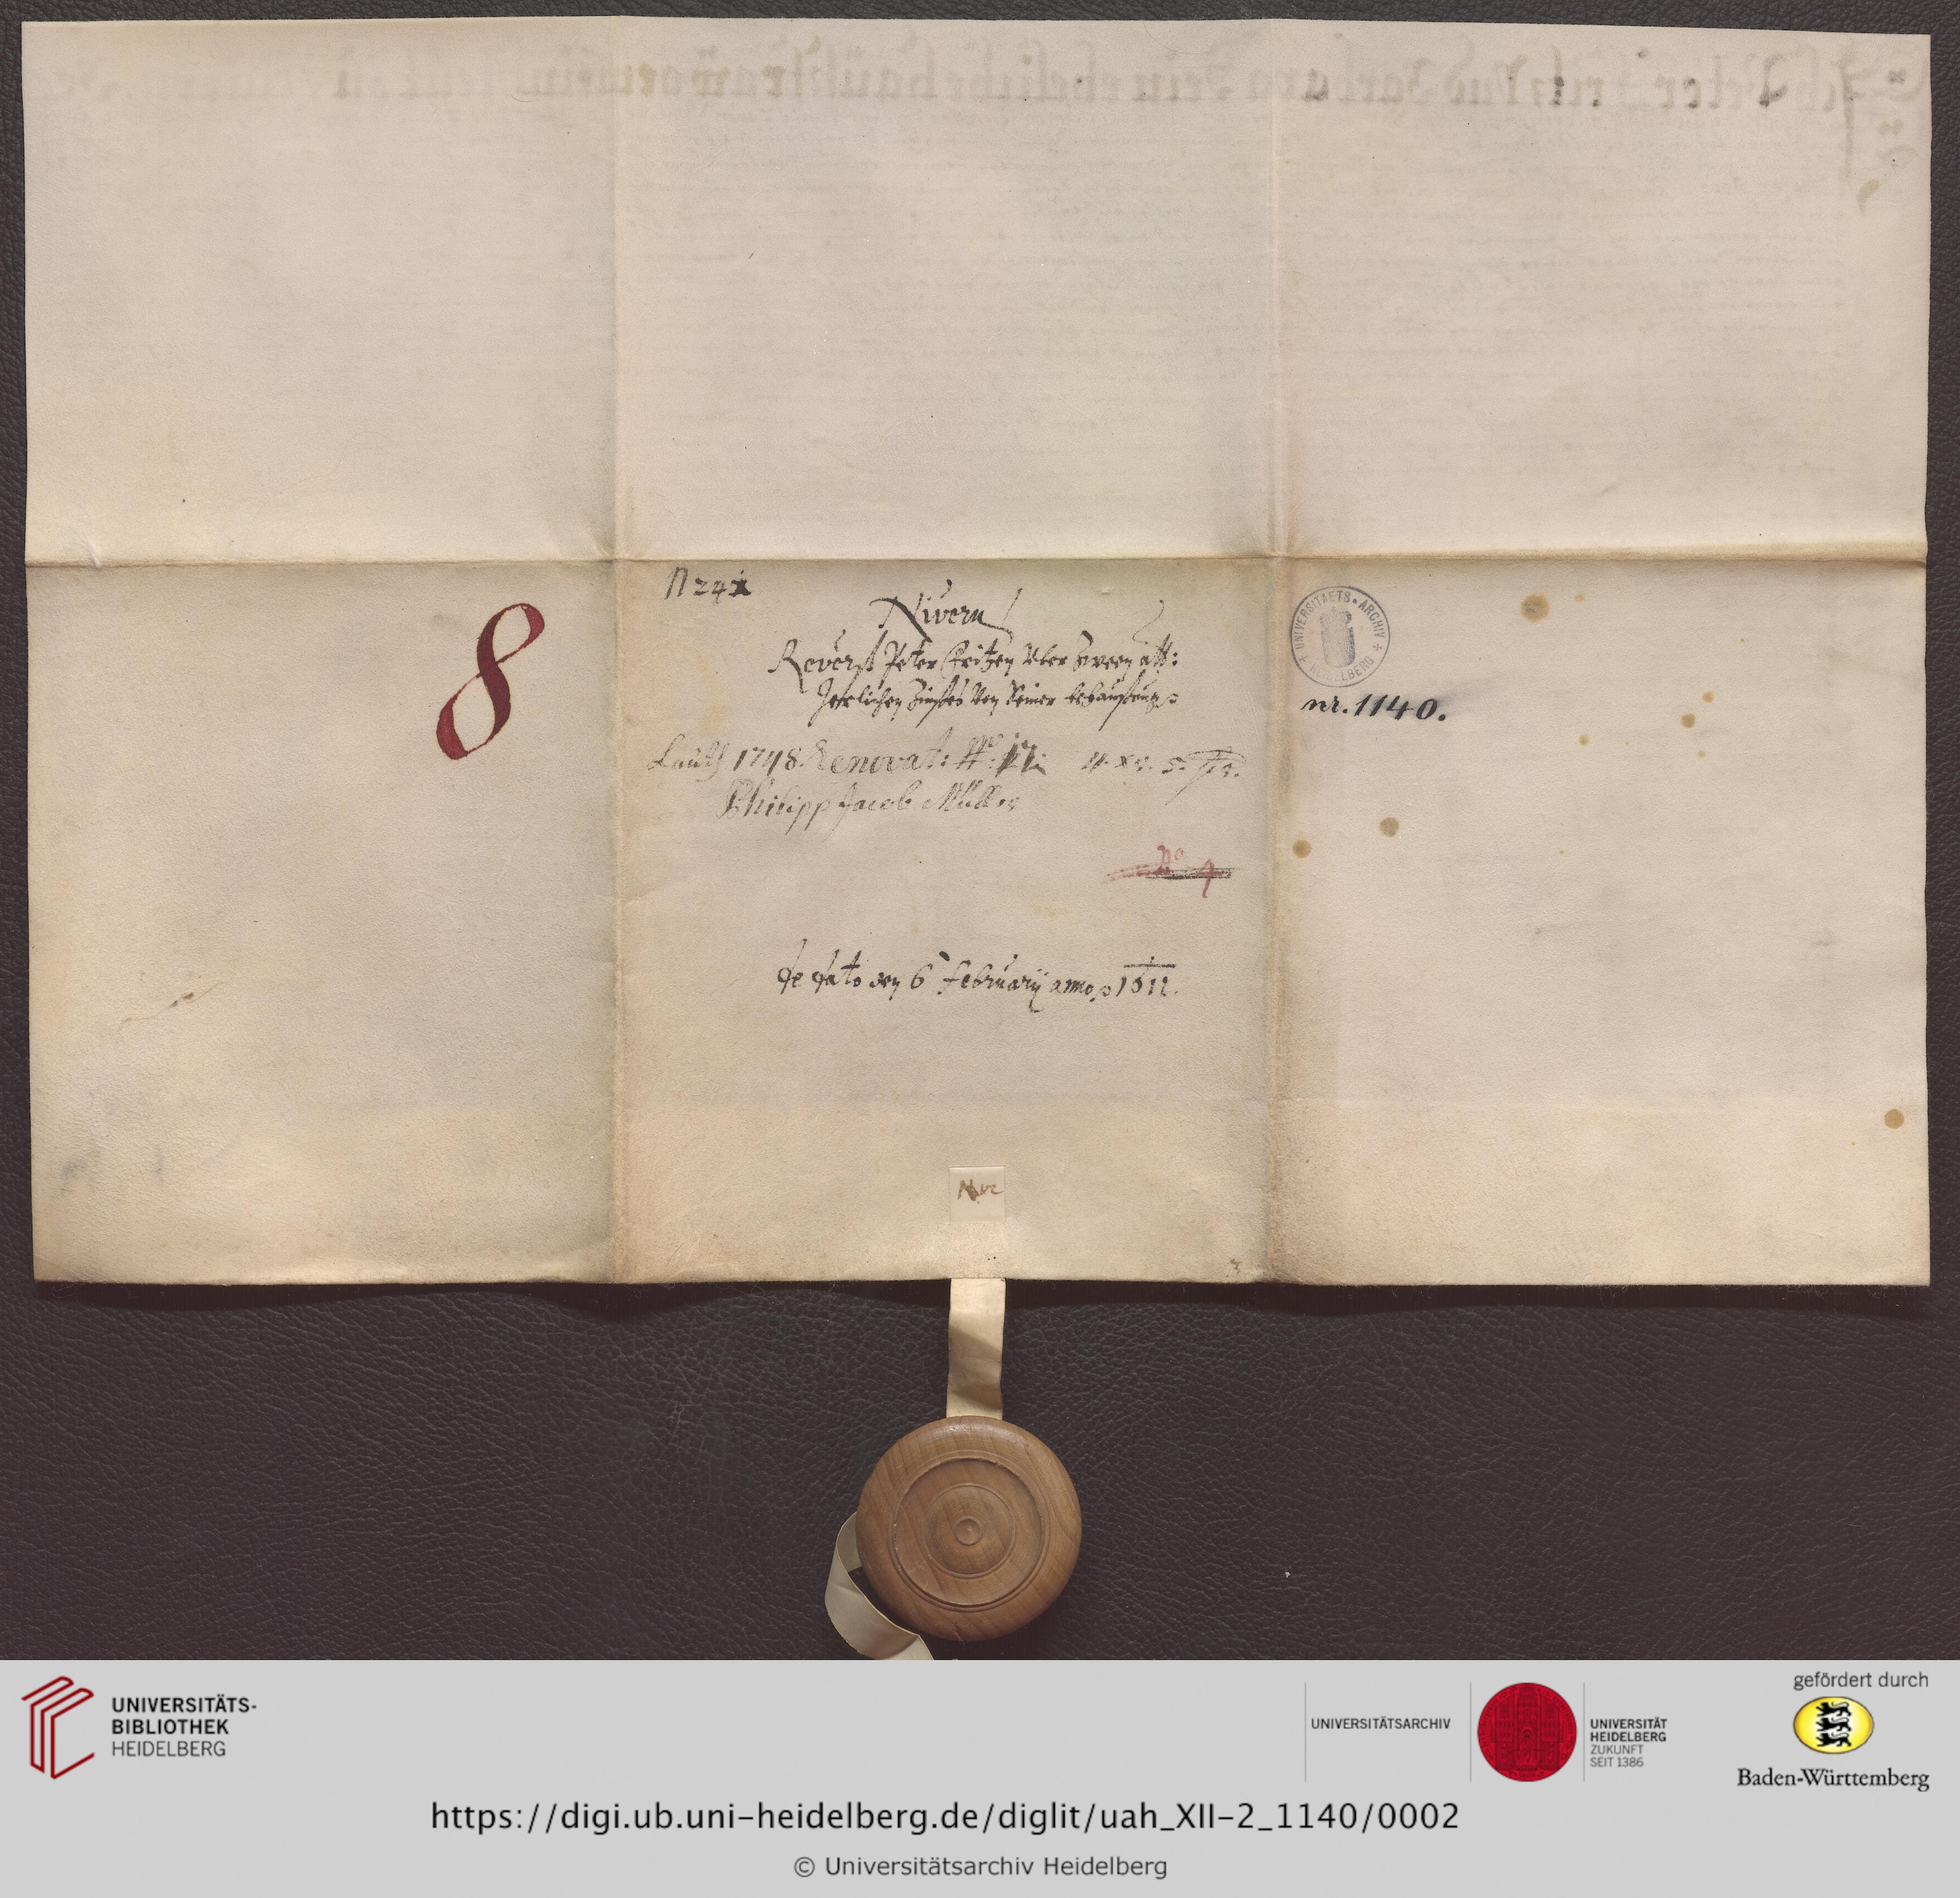 8
N 241
Nivern
Reverß Peter Fritzen Uber Zween alb:
Jerlichen Zinses Von Seiner behausung
Lauth 1748 Renovat:
Philipp Jacob Müller
No 7
de dato den 6 Februarij anno 1612.
UNIVERSITAETS-ARCHIV
HEIDELBERG
nr. 1140.
UNIVERSITÄTS-
BIBLIOTHEK
HEIDELBERG
UNIVERSITÄTSARCHIV
UNIVERSITÄT
HEIDELBERG
ZUKUNFT
SEIT 1386
gefördert durch
Baden-Württemberg
https://digi.ub.uni-heidelberg.de/diglit/uah_XII-2_1140/0002
© Universitätsarchiv Heidelberg